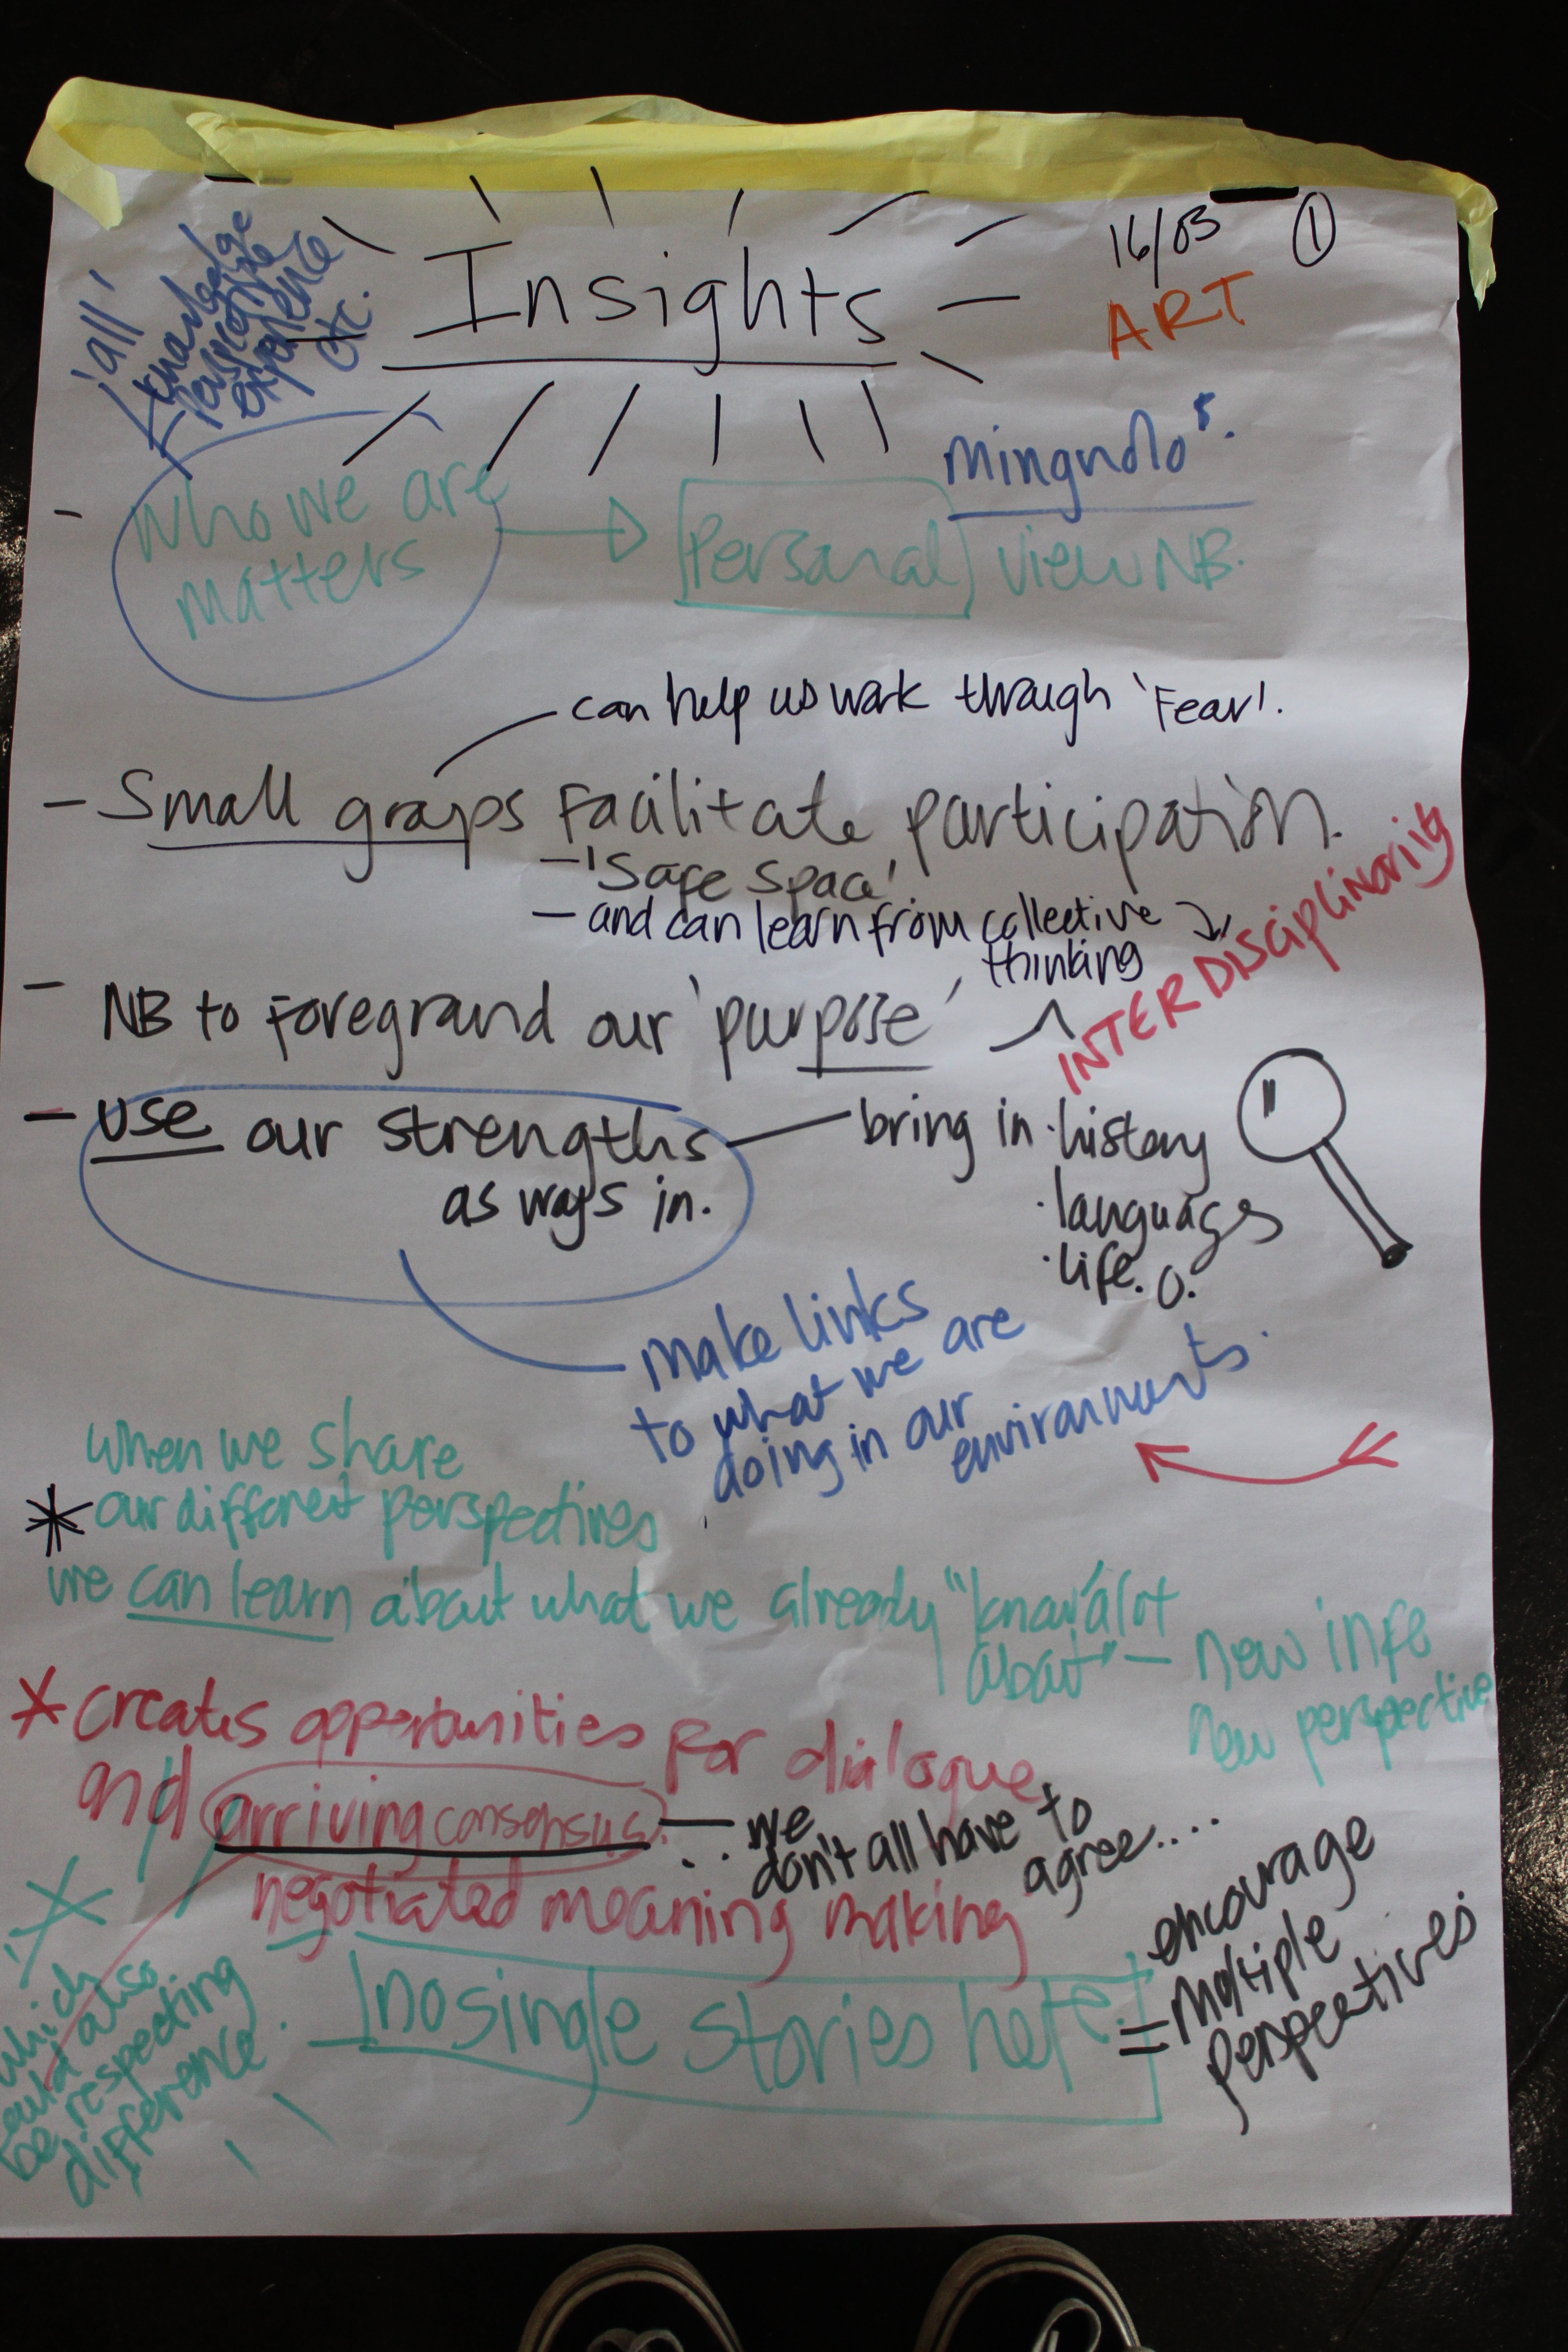 Insights
16/03 ①
ART
'all'
knowledge
perspective
experience
etc.
- who we are
matters
Personal view NB.
can help us work through 'Fear'.
- Small groups Facilitate participation.
- 'Safe Space'
- and can learn from collective
thinking
INTERDISCIPLINARITY
- NB to foreground our 'purpose'
- use our strengths
as ways in.
bring in · history
· languages
· life. O.
make links
to what we are
doing in our
environments.
when we share
* our different perspectives
we can learn about what we already "know" alot
about" - new info
new perspective
* creates opportunities for dialogue
and arriving consensus.
... we
don't all have to
agree....
negotiated meaning making
no single stories here!
= encourage
multiple
perspectives
* which
could also
be respecting
difference